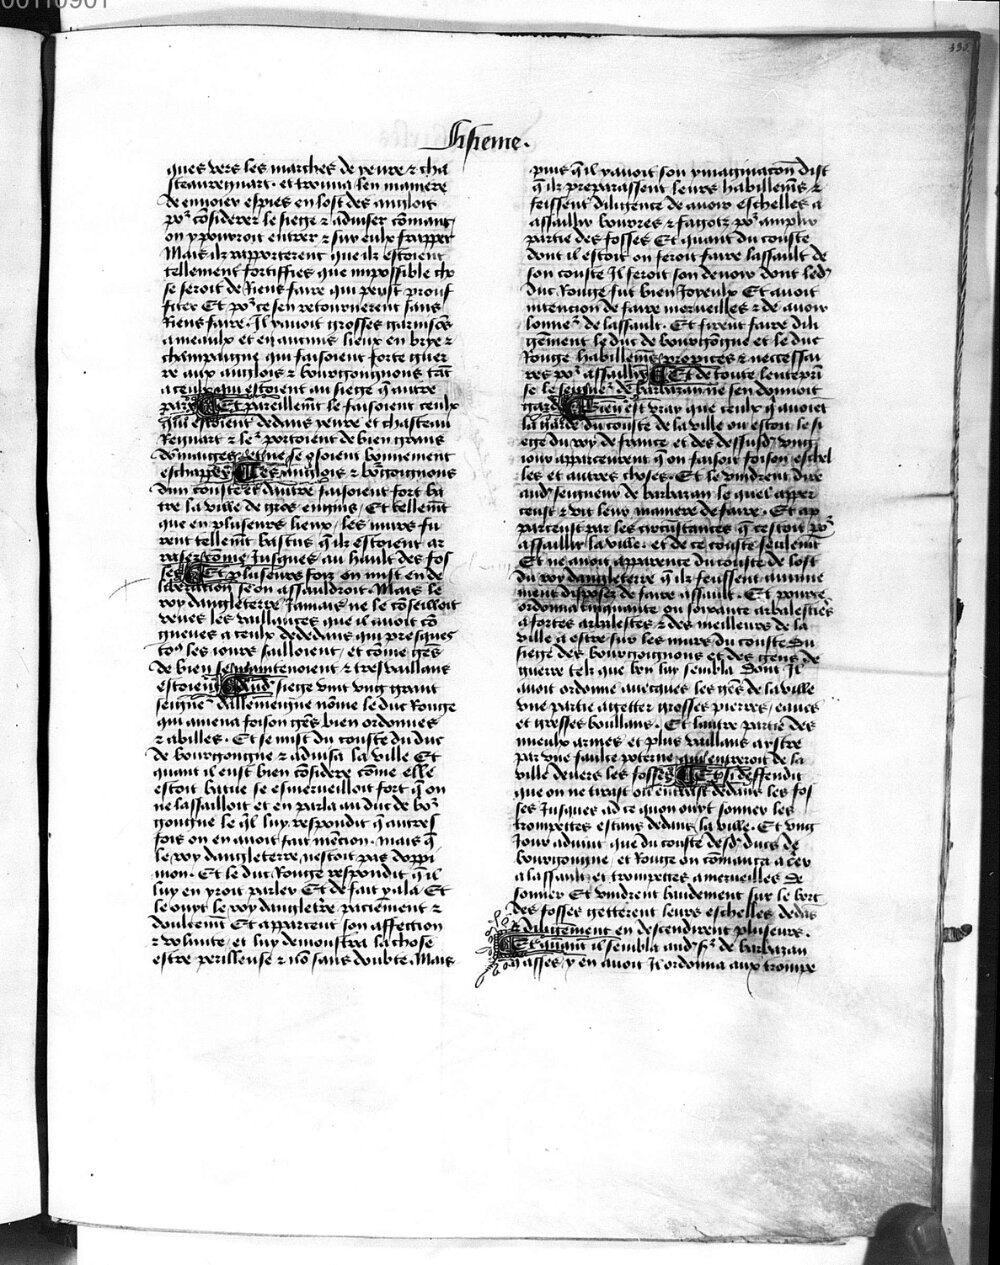 ques vers les marches de yevre & cha
steauregnart. et trouua len maniere
de enuoier espies en lost des anglois
por cōsiderer le siege & aduiser cōmant
on y pouroit entrer & sur eulx frapper
Mais ilz rapporterent que ilz estoient
tellement fortiffies que impossible cho
se seroit de Riens faire qui peust prouf
fiter Et por ce sen retournerent sans
Riens faire. Il y auoit grosses garnisōs
a meaulx et en aucuns lieux en brye &
champaigne qui faisoient forte guer
re aux anglois & bourgongnons tāt
a ceulx qui estoient au siege q̄ autre
part Et pareillemt le faisoient ceulx
qui estoient dedans yevre et chasteau
Regnart & ler portoient de bien grans
dōmaiges et ne se osoient bonnement
escharper Les anglois & bōrgongnons
dun couste & dautre faisoient fort ba
tre la ville de gros engins / Et tellemt
que en pluseurs lieux / les murs fu
rent tellemt batus q̄ ilz estoient ar
rasez cōme Jusques au hault des fos
ses Et pluseurs foiz en mist en de
liberacion se on assauldroit. Mais le
roy dangleterre Jamais ne le cōseilloit
veues les vaillances que il auoit cō
gneues a ceulx de dedans qui presques
tos les iours sailloient / et cōme gēs
de bien se maintenoient & tresvaillans
estoient Aud siege vint vng grant
seigner dallemeigne nōme le duc Rouge
qui amena foison gēs bien ordonnes
& abilles. Et se mist du couste du duc
de bourgongne & aduisa la ville Et
quant il eust bien cōsidere cōme elle
estoit batue se esmerueilloit fort q̄ on
ne lassailloit et en parla au duc de bor
gongne le q̄l luy respondit q̄ autres
fois on en auoit fait mēcion. mais q̄
le roy dangleterre nestoit pas doppi
nion. Et le duc Rouge respondit q̄ il
luy en yroit parler Et de fait y ala Et
le ouyt le roy dangletre paciēment &
doulcemt Et apparceut son affection
& volunte / et luy demonstra la chose
estre perilleuse & nō sans doubte. Mais
puis q̄ il y auoit son ymaginacōn dist
q̄ ilz preparassent leurs habillemēs &
feissent diligence de auoir eschelles a
assaillir bourrees & fagotz por amplir
partie des fosses Et quant du couste
dont il estoit on feroit faire lassault de
son couste Il feroit son deuoir dont led
duc Rouge fut bien Joyeulx Et auoit
intencion de faire merueilles & de auoir
lonner de lassault. Et firent faire dili
gemment le duc de bourgongne et le duc
Rouge habillemēs propices & neccessai
res por assaillir Et de toute lentepri
se le seigner de barbazan ne sen donnoit
garde Bien est vray que ceulx q̄ auoiēt
la garde du couste de la ville ou estoit le si
ege du roy de france et des dessusd vng
iour apparceurent q̄ on faisoit foison eschel
les et autres choses. Et le vindrent dire
aud seigneur de barbazan le quel apper
ceust & vit leur maniere de faire. Et ap
parceust par les circūstances q̄ cestoit por
assaillir la ville. et de ce couste seulemt
Et ne auoit apparence du couste de lost
du roy dangleterre q̄ ilz feussent aucune
ment disposez de faire assault. Et pource
ordonna cinquante ou soixante arbalestries
a fortes arbalestes & des meilleurs de la
ville a estre sur les murs du couste du
siege des bourgoignons et des gens de
guerre telz que bon luy sembla Dont Il
auoit ordonne auecques les gēs de la ville
vne partie a getter grosses pierres / eaues
et gresses boullans. Et lautre partie des
mieulx armes et plus vaillans a estre
par vne faulce poterne qui entreroit de la
ville deuers les fosses Et si deffendit
que on ne tirast ou entrast dedans les fos
ses Jusques ad ce quon ouyt sonner les
trompettes estans dedans la ville. Et vng
Jour aduint que du couste desd ducs de
bourgoingne et Rouge on cōmanca a cer
a lassault / et trompettes a merueilles de
sonner Et vindrent baudement sur le bort
des fosses getterent leurs eschelles dedās
& diligemment en descendirent pluseurs.
Et quant il sembla aud sr de barbazan
q̄ asses y en auoit Il ordonna aux trompe